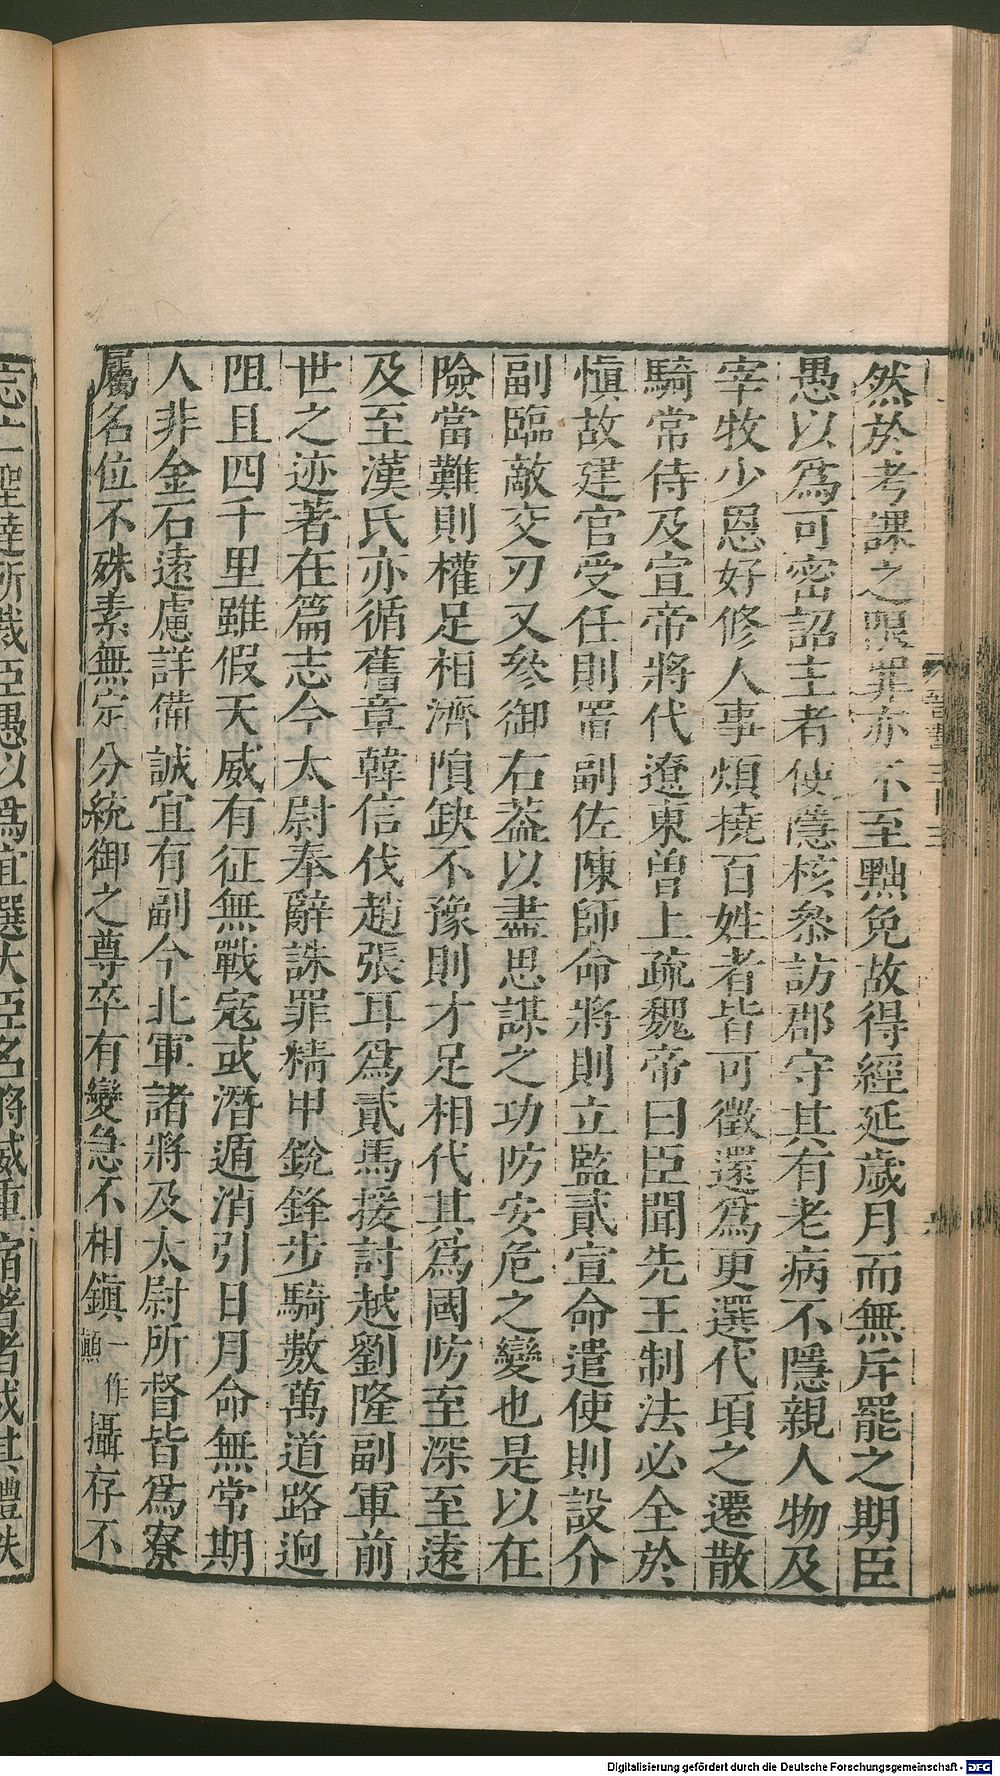 然於考課之限罪亦不至黜免故得經延歲月而無斥罷之期臣
愚以爲可密詔主者使隱核叅訪郡守其有老病不隱親人物及
宰牧少恩好修人事煩撓百姓者皆可徵還爲更選代頃之遷散
騎常侍及宣帝將代遼東曽上疏魏帝曰臣聞先王制法必全於
愼故建官受任則置副佐陳師命將則立監貳宣命遣使則設介
副臨敵交刃又叅御右葢以盡思謀之功防安危之變也是以在
險當難則權足相濟隕缺不豫則才足相代其爲國防至深至遠
及至漢氏亦循舊章韓信伐趙張耳爲貳馬接討越劉隆副軍前
世之迹著在篇志今太尉奉辭誅罪精甲銳鋒步騎數萬道路迥
阻且四千里雖假天威有征無戰寇或潛遁消引日月命無常期
人非金石遠慮詳備誠宜有副今北軍諸將及太尉所督皆爲寮
屬名位不殊素無定分統御之尊卒有變急不相鎭一作顚攝存不
忘亡聖達所戒臣愚以爲宜選大臣名將威重宿著者成其禮秩
Digitalisierung gefördert durch die Deutsche Forschungsgemeinschaft - DFG